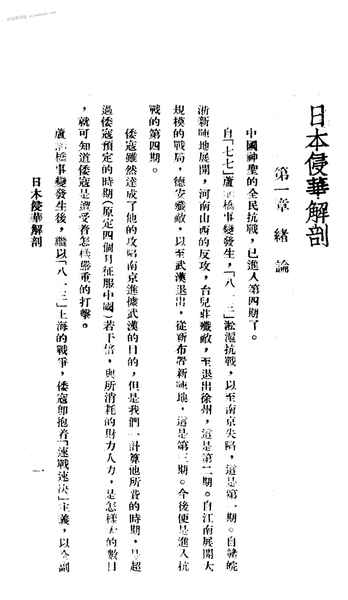 日本侵華解剖
第一章 緒論
中國神聖的全民抗戰，已進入第四期了。
自「七七」蘆溝橋事變發生，「八一三」淞滬抗戰，以至南京失陷，這是第一期。自贛皖
浙新陣地展開，河南山西的反攻，台兒莊殲敵，至退出徐州，這是第二期。自江南展開大
規模的戰局，德安殲敵，以至武漢退出，從新布署新陣地，這是第三期。今後便是進入抗
戰的第四期。
倭寇雖然達成了他的攻陷南京進據武漢的目的，但是我們一計算他所費的時期，是超
過倭寇預定的時期（原定四個月征服中國）若干倍，與所消耗的財力人力，是怎樣大的數目
，就可知道倭寇是遭受着怎樣嚴重的打擊。
蘆溝橋事變發生後，繼以「八一三」上海的戰爭，倭寇卽抱着「速戰速決」主義，以全副
日本侵華解剖
一